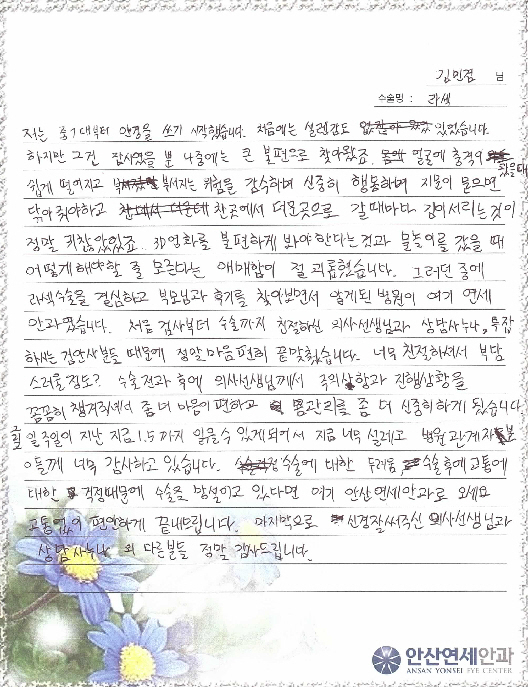 김민겸 님
수술명 : 라섹
저는 중1때부터 안경을 쓰기 시작했습니다. 처음에는 설렘감도 있었습니다.
하지만 그건 잠시였을 뿐 나중에는 큰 불편으로 찾아왔죠. 얼굴에 충격이 왔을때
쉽게 떨어지고 부서지는 위험을 감수하며 신중히 행동하며 지문이 묻으면
닦아줘야하고 찬곳에서 더운곳으로 갈때마다 김이서리는것이
정말 귀찮았죠. 3D영화를 불편하게 봐야한다는것과 물놀이를 갔을 때
어떻게 해야할 줄 모른다는 애매함이 절 괴롭혔습니다. 그러던 중에
라섹수술을 결심하고 부모님과 후기를 찾아보면서 알게된 병원이 여기 연세
안과였습니다. 처음 검사부터 수술까지 친절하신 의사선생님과 상담사누나, 특잡
하시는 검안사분들 때문에 정말 마음편히 끝마쳤습니다. 너무 친절하셔서 부담
스러울정도? 수술전과 후에 의사선생님께서 주의상항과 진행상황을
꼼꼼히 챙겨주셔서 좀 더 마음이 편하고 눈관리를 좀 더 신중히하게 됐습니다
그리고 일주일이 지난 지금 1.5까지 읽을수 있게되어서 지금 너무 설레고 병원관계자분
이들께 너무 감사하고 있습니다. 수술에 대한 두려움, 수술후에 고통에
대한 걱정때문에 수술조차 망설이고 있다면 여기 안산연세안과로 오세요
고통없이 편안하게 끝내드립니다. 마지막으로 신경잘써주신 의사선생님과
상담사누나 외 다른분들 정말 감사드립니다.
안산연세안과
ANSAN YONSEI EYE CENTER